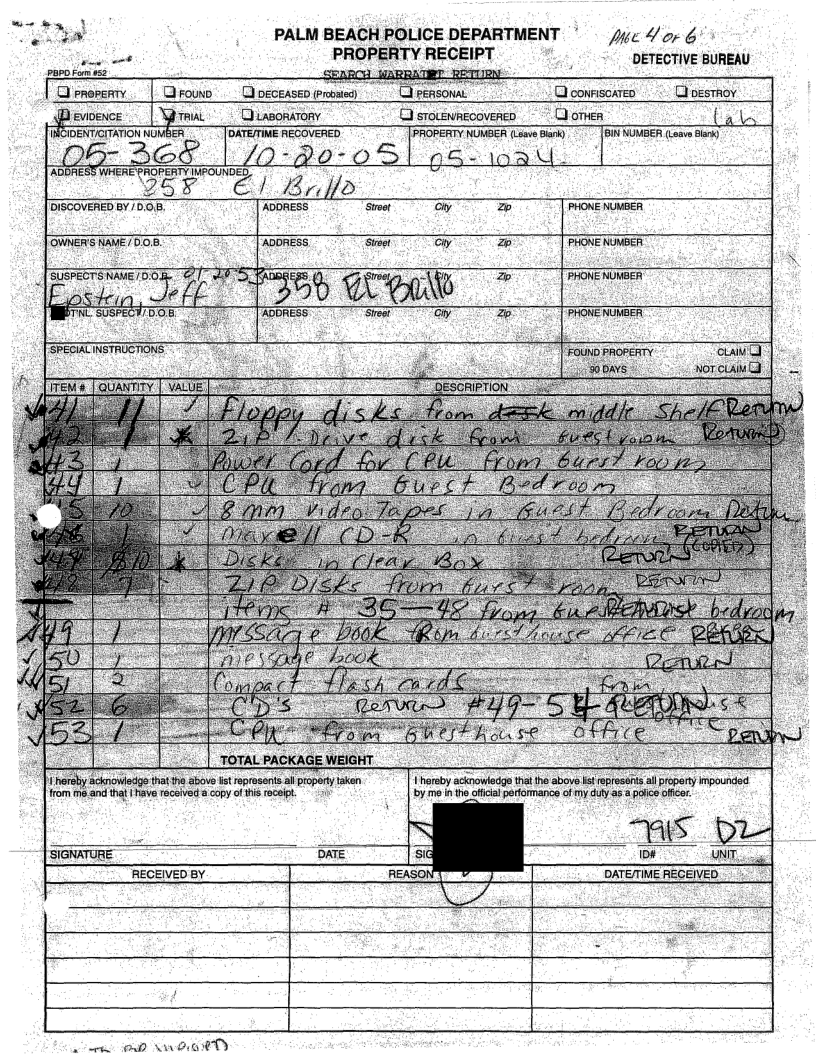 PALM BEACH POLICE DEPARTMENT PAGE 4 OF 6
PROPERTY RECEIPT
DETECTIVE BUREAU
PBPD Form #52 SEARCH WARRANT RETURN
PROPERTY FOUND DECEASED (Probated) PERSONAL CONFISCATED DESTROY
EVIDENCE TRIAL LABORATORY STOLEN/RECOVERED OTHER lab
INCIDENT/CITATION NUMBER DATE/TIME RECOVERED PROPERTY NUMBER (Leave Blank) BIN NUMBER (Leave Blank)
05-368 10-20-05 05-1024
ADDRESS WHERE PROPERTY IMPOUNDED
258 El Brillo
DISCOVERED BY / D.O.B. ADDRESS Street City Zip PHONE NUMBER
OWNER'S NAME / D.O.B. ADDRESS Street City Zip PHONE NUMBER
SUSPECT'S NAME / D.O.B. 01-20-53 ADDRESS Street City Zip PHONE NUMBER
Epstein, Jeff 358 El Brillo
SUSPECT / D.O.B. ADDRESS Street City Zip PHONE NUMBER
SPECIAL INSTRUCTIONS FOUND PROPERTY CLAIM
90 DAYS NOT CLAIM
ITEM # QUANTITY VALUE DESCRIPTION
41 11 Floppy disks from desk middle Shelf Return
42 1 ZIP Drive disk from Guest room Return
43 1 Power Cord for CPU from Guest room
44 1 CPU from Guest Bedroom
45 10 8mm video Tapes in Guest Bedroom Return
46 1 maxell CD-R in Guest bedroom RETURN
(COPIED)
10 Disks in Clear Box RETURN
7 ZIP Disks from Guest room RETURN
items # 35-48 from bedroom
49 1 message book from Guesthouse office RETURN
50 1 message book RETURN
51 2 Compact flash cards from
52 6 CD'S RETURN #49-54 RETURN office
53 1 CPU from Guesthouse office RETURN
TOTAL PACKAGE WEIGHT
I hereby acknowledge that the above list represents all property taken
from me and that I have received a copy of this receipt.
I hereby acknowledge that the above list represents all property impounded
by me in the official performance of my duty as a police officer.
7915 D2
SIGNATURE DATE SIG ID# UNIT
RECEIVED BY REASON DATE/TIME RECEIVED